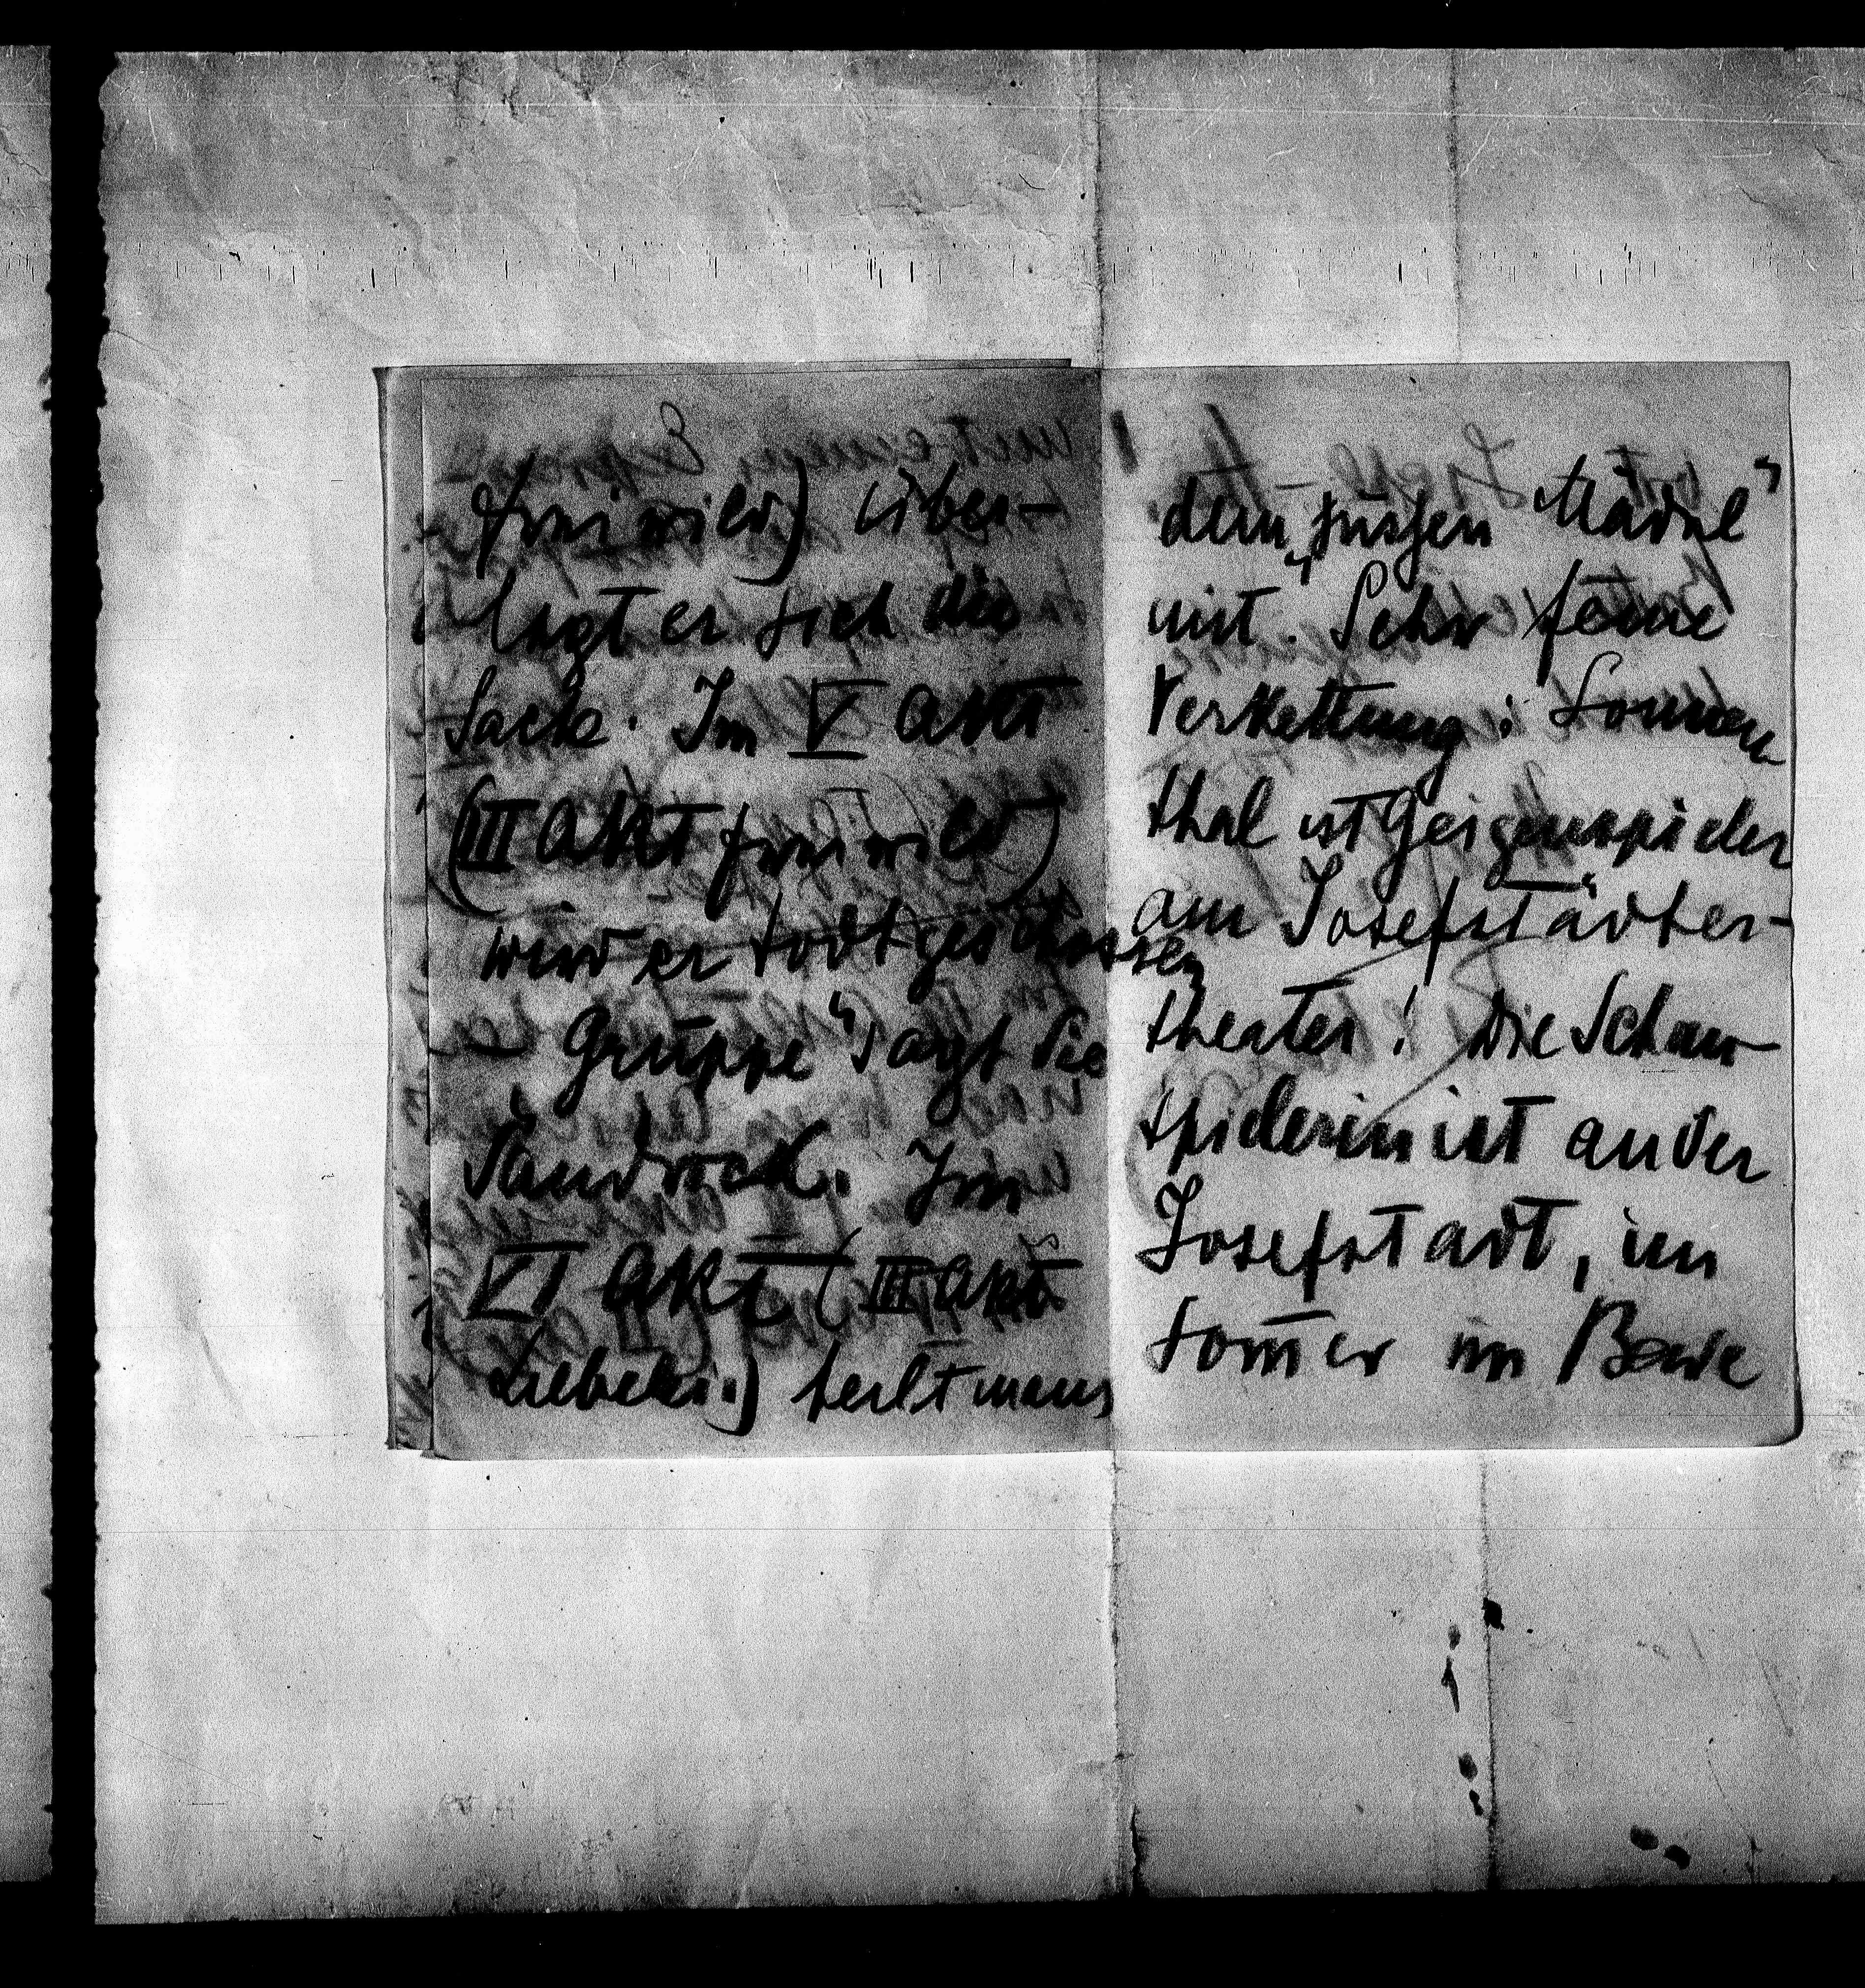 Freiwild) über-
legt er sich die
Sache. Im V Akt
(III Akt Freiwild)
wird er todtgeschossen
– Gruppe" sagt die
Sandrock. Im
VI Akt (III Akt
Liebelei.) theilt mans
dem „süszen Mädel"
mit. Sehr feine
Verkettung: Sonnen
thal ist Geigenspieler
am Josefstädter-
theater! Die Schau-
spielerin ist an der
Josefstadt, im
Som̄er im Bade